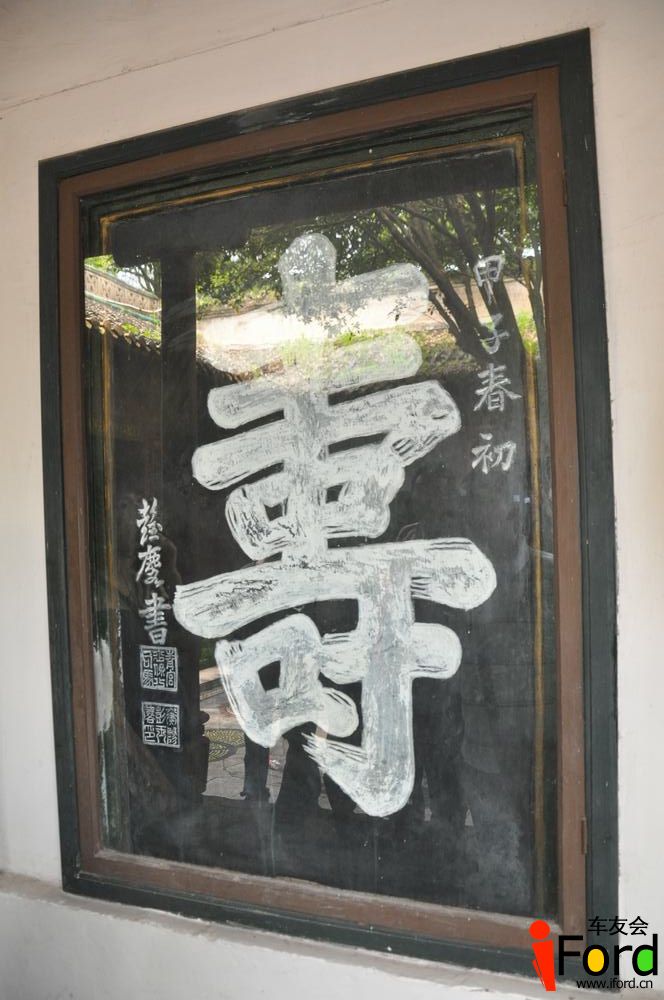 甲子春初
壽
彭慶書
车友会
iFord
www.iford.cn